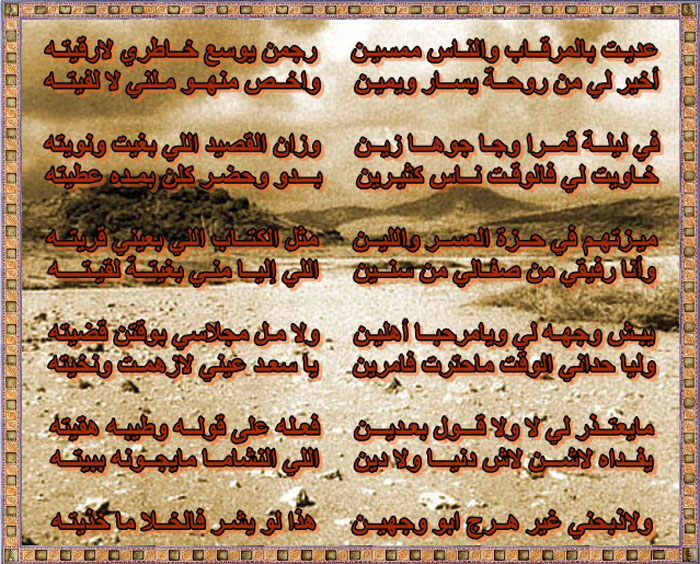 عديت بالمرقاب والناس ممسين رجمن يوسع خاطري لارقيته
أخير لي من روحة يسار ويمين واخص منهو ملني لا لفيته
في ليلة قمرا وجا جوها زين وزان القصيد اللي بغيت ونويته
خاويت لي فالوقت ناس كثيرين بدو وحضر كلن بمده عطيته
ميزتهم في حزة العسر واللين مثل الكتاب اللي بعيني قريته
وأنا رفيقي من صفالي من سنين اللي إليا مني بغيتة لقيته
يبش وجهه لي ويامرحبا أهلين ولا مل مجلاسي بوقتن قضيته
وليا حداني الوقت ماحترت فامرين يا سعد عيني لازهمت ونخيته
مايعتذر لي لا ولا قول بعدين فعله على قوله وطيبه هقيته
يفداه لاشن لاش دنيا ولا دين اللي النشاما مايجونه ببيته
ولاذبحني غير هرج ابو وجهين هذا لو يشر فالخلا ما خذيته